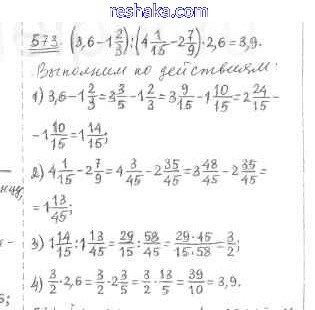 reshaka.com
573. (3,6-1 2/3):(4 1/15-2 7/9)·2,6=3,9.
Выполним по действиям:
1) 3,6-1 2/3=3 3/5-1 2/3=3 9/15-1 10/15=2 24/15-
-1 10/15=1 14/15;
2) 4 1/15-2 7/9=4 3/45-2 35/45=3 48/45-2 35/45=
=1 13/45;
3) 1 14/15:1 13/45=29/15:58/45=29·45/15·58=3/2;
4) 3/2·2,6=3/2·2 3/5=3/2·13/5=39/10=3,9.
reshaka.com